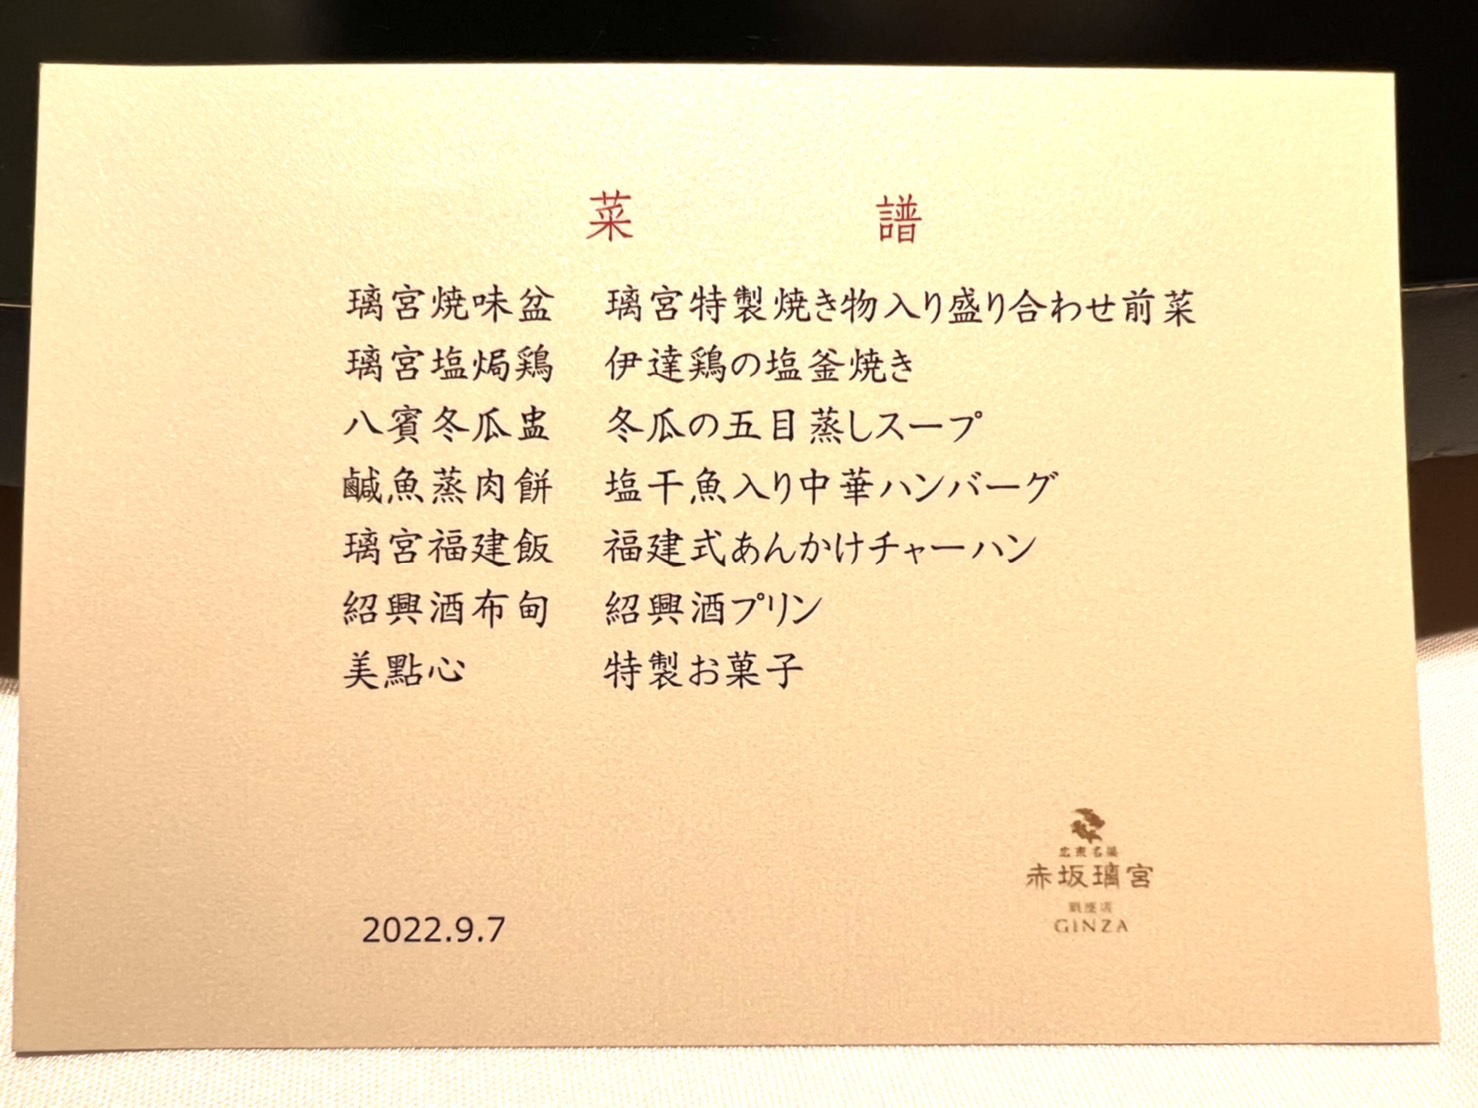 菜 譜
璃宮焼味盆 璃宮特製焼き物入り盛り合わせ前菜
璃宮塩焗鶏 伊達鶏の塩釜焼き
八賓冬瓜盅 冬瓜の五目蒸しスープ
鹹魚蒸肉餅 塩干魚入り中華ハンバーグ
璃宮福建飯 福建式あんかけチャーハン
紹興酒布甸 紹興酒プリン
美點心 特製お菓子
赤坂璃宮
銀座店
GINZA
2022.9.7